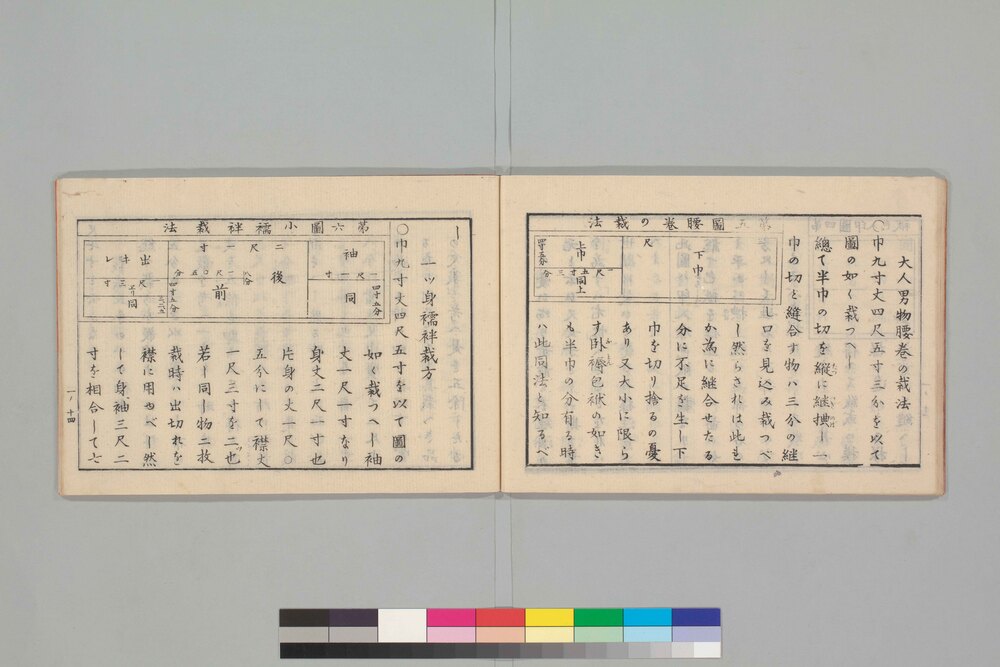 大人男物腰巻の裁法
〇巾九寸丈四尺五寸三分を以て
圖の如く裁つへし
總て半巾の切を縦に継接し一
巾の切と縫合す物ハ三分の継
し口を見込み裁つへ
し然らされは此も
か為に継合せたる
分に不足を生し下
巾を切り捨るの憂
あり又大小に限ら
す臥褥包袱の如き
も半巾の分有る時
ハ此同法と知るべ
第五圖腰巻の裁法
下巾
尺
上巾
一尺五寸三分
同上
し
一ツ身襦袢裁方
〇巾九寸丈四尺五寸を以て圖の
如く裁つへし袖
丈一尺一寸なり
身丈二尺一寸也
片身の丈一尺〇
五分にして襟丈
一尺三寸を二ツ也
若し同し物二枚
裁時ハ出切れを
襟に用ゆべし然
して身袖三尺二
寸を相合して七
第六圖小襦袢裁法
袖
一尺一寸
同
四寸五分
二尺一寸
後
前
一尺〇五分
出キレ
一尺三寸
ヱリ
同
一ノ十四